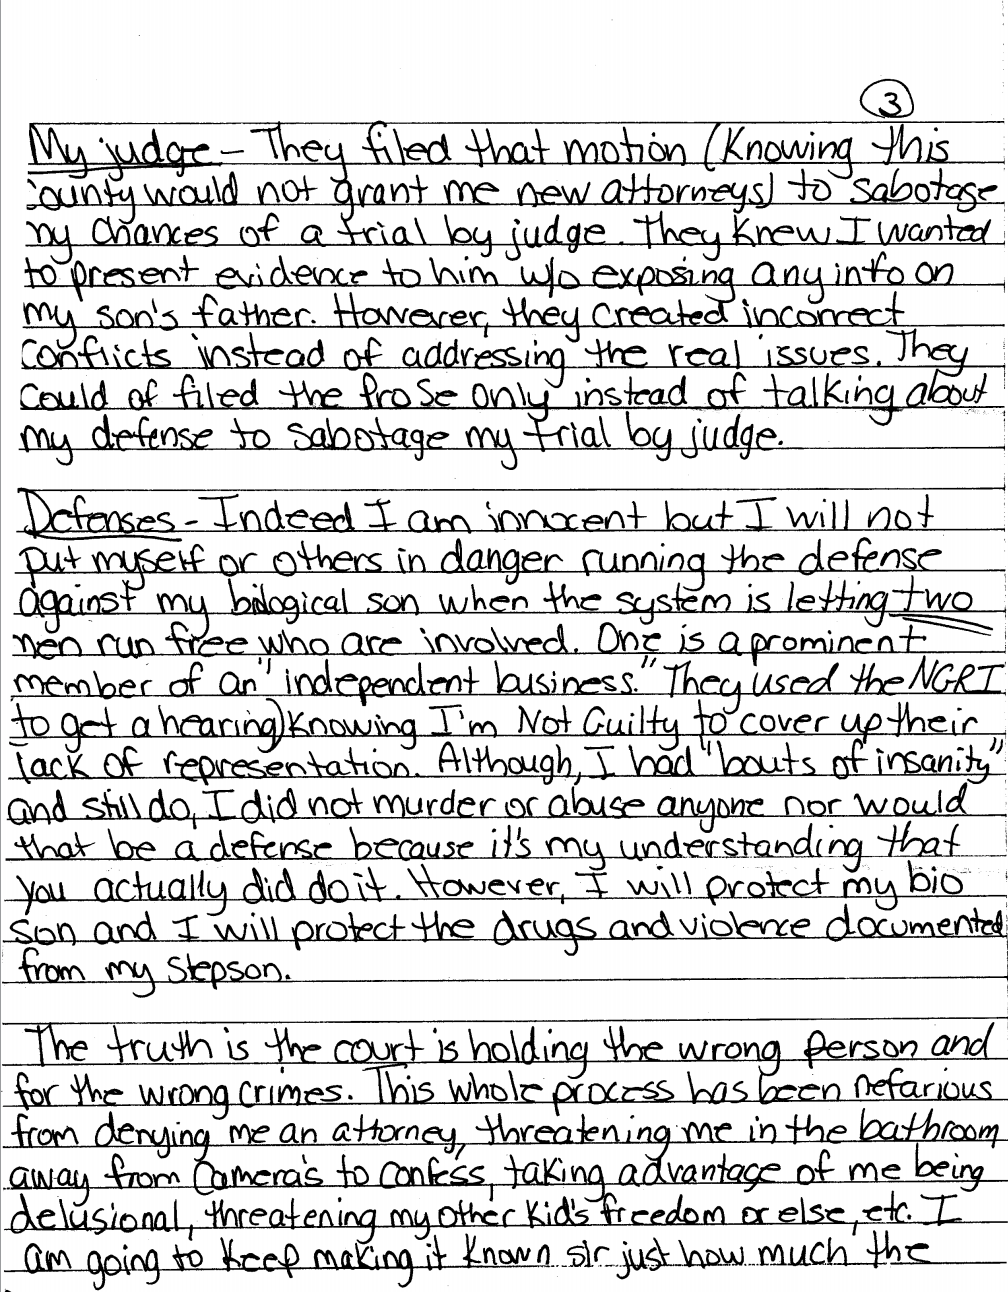 3
My judge - They filed that motion (Knowing this
county would not grant me new attorneys) to sabotage
my chances of a trial by judge. They knew I wanted
to present evidence to him w/o exposing any info on
my son's father. However, they created incorrect
conflicts instead of addressing the real issues. They
could of filed the Pro Se only instead of talking about
my defense to sabotage my trial by judge.
Defenses - Indeed I am innocent but I will not
put myself or others in danger running the defense
against my biological son when the system is letting two
men run free who are involved. One is a prominent
member of an "independent business." They used the NGRI
to get a hearing) knowing I'm Not Guilty to cover up their
lack of representation. Although, I had "bouts of insanity"
and still do, I did not murder or abuse anyone nor would
that be a defense because it's my understanding that
you actually did do it. However, I will protect my bio
son and I will protect the drugs and violence documented
from my stepson.
The truth is the court is holding the wrong person and
for the wrong crimes. This whole process has been nefarious
from denying me an attorney, threatening me in the bathroom
away from Camera's to confess, taking advantage of me being
delusional, threatening my other kid's freedom or else, etc. I
am going to keep making it known sir just how much the